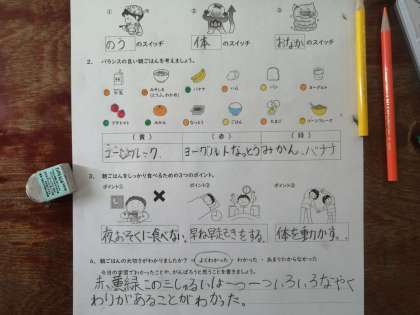 ① ② ③
のう のスイッチ 体 のスイッチ おなか のスイッチ
2. バランスの良い朝ごはんを考えましょう。
牛乳 みそしる（とうふ、わかめ） バナナ ハム パン ヨーグルト
プチトマト みかん なっとう ごはん たまご コーンフレーク
（黄） （赤） （緑）
コーンフレーク ヨーグルトなっとう みかん、バナナ
3. 朝ごはんをしっかり食べるための3つのポイント。
ポイント① ポイント② ポイント③
夜おそくに食べない。 早ね早起きをする。 体を動かす。
4. 朝ごはんの大切さがわかりましたか？ よくわかった ・ わかった ・ あまりわからなかった
今日の学習でわかったことや、がんばろうと思うことを書きましょう。
赤、黄緑、この三しゅるいは一つ一ついろいろなやく
わりがあることがわかった。